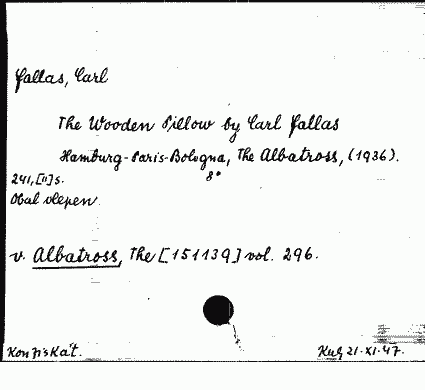 Fallas, Carl
The Wooden Pillow by Carl Fallas
Hamburg-Paris-Bologna, The Albatross, (1936).
8°
241, [II] s.
Obal vlepen.
v. Albatross, The [151139] vol. 296.
Konfiskát.
21.XI.47.